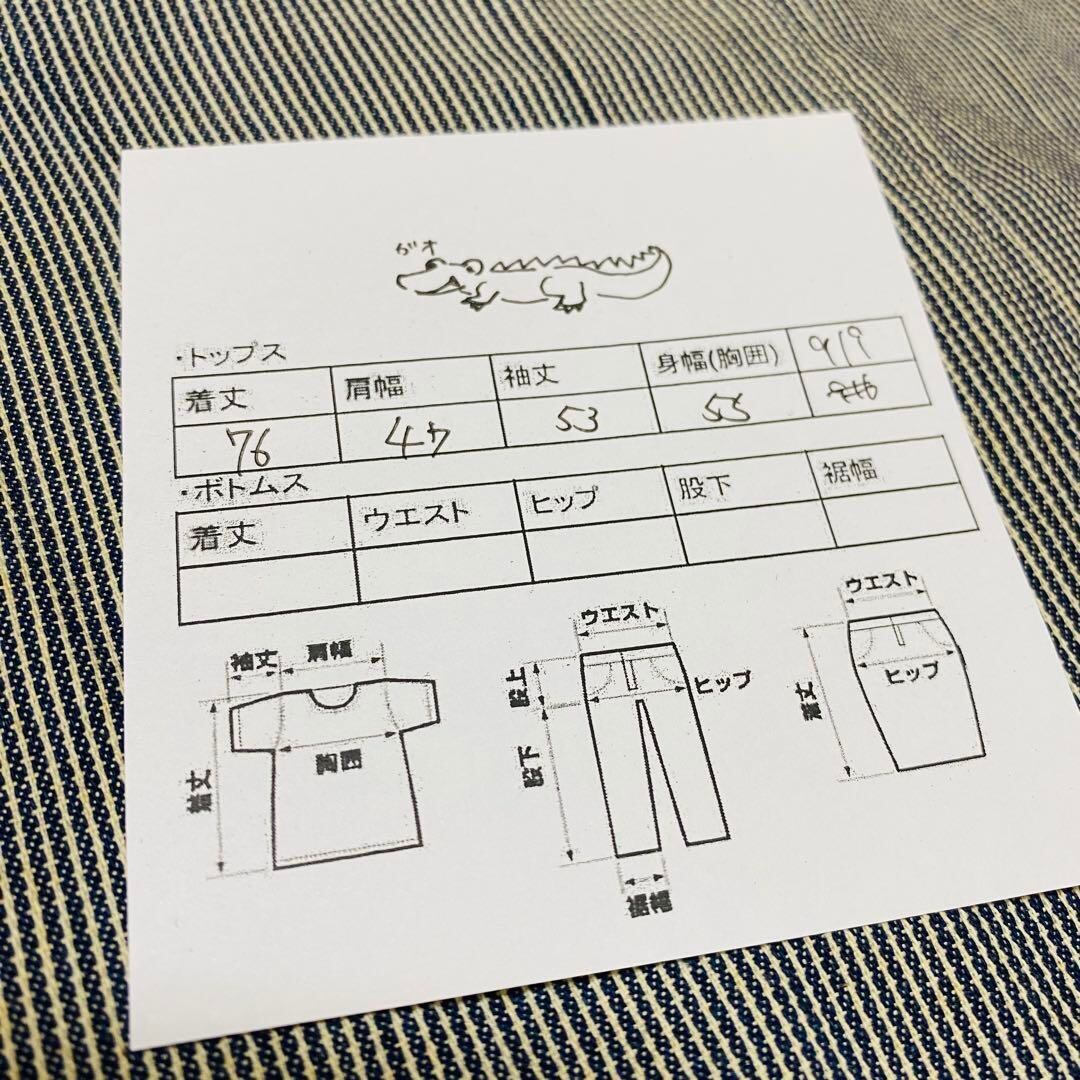 ガオ
・トップス
着丈 肩幅 袖丈 身幅(胸囲) 919
76 44 53 55
・ボトムス
着丈 ウエスト ヒップ 股下 裾幅
袖丈 肩幅
胸囲
着丈
ウエスト
股上
ヒップ
股下
裾幅
ウエスト
ヒップ
着丈